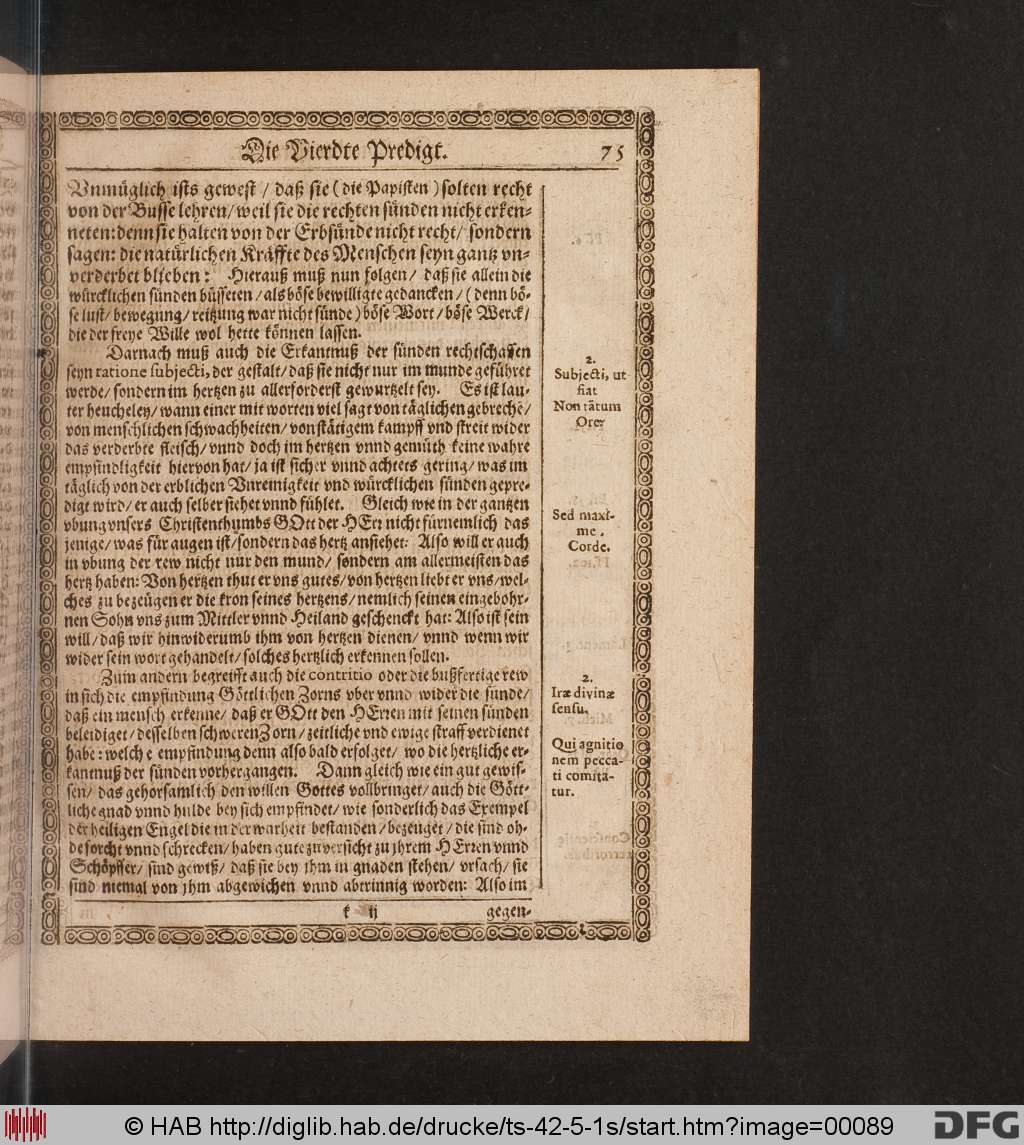 Die Vierdte Predigt. 75
Vnmüglich ists gewest / daß sie ( die Papisten ) solten recht
von der Busse lehren/ weil sie die rechten sünden nicht erken-
neten: denn sie halten von der Erbsünde nicht recht/ sondern
sagen: die natürlichen Kräffte des Menschen seyn gantz vn-
verderbet blieben: Hierauß muß nun folgen/ daß sie allein die
würcklichen sünden büsseten / als böse bewilligte gedancken / ( denn bö-
se lust/ bewegung/ reitzung war nicht sünde ) böse Wort / böse Werck /
die der freye Wille wol hette können lassen.
Darnach muß auch die Erkantnuß der sünden rechtschaffen
seyn ratione subjecti, der gestalt / daß sie nicht nur im munde geführet
werde / sondern im hertzen zu allerforderst gewurtzelt sey. Es ist lau-
ter heucheley / wann einer mit worten viel sagt von täglichen gebrechē /
von menschlichen schwachheiten / von stätigem kampff vnd streit wider
das verderbte fleisch / vnnd doch im hertzen vnnd gemüth keine wahre
empfindligkeit hiervon hat / ja ist sicher vnnd achtets gering / was im
täglich von der erblichen Vnreinigkeit vnd würcklichen sünden gepre-
digt wird / er auch selber siehet vnnd fühlet. Gleich wie in der gantzen
vbung vnsers Christenthumbs GOtt der HErr nicht fürnemlich das
jenige / was für augen ist / sondern das hertz ansiehet: Also will er auch
in vbung der rew nicht nur den mund / sondern am allermeisten das
hertz haben: Von hertzen thut er vns gutes / von hertzen liebt er vns / wel-
ches zu bezeügen er die kron seines hertzens / nemlich seinen eingebohr-
nen Sohn vns zum Mittler vnnd Heiland geschenckt hat: Also ist sein
will / daß wir hinwiderumb ihm von hertzen dienen / vnnd wenn wir
wider sein wort gehandelt / solches hertzlich erkennen sollen.
Zum andern begreifft auch die contritio oder die bußfertige rew
in sich die empfindung Göttlichen Zorns vber vnnd wider die sünde /
daß ein mensch erkenne / daß er GOtt den HErren mit seinen sünden
beleidiget / desselben schweren Zorn / zeitliche vnd ewige straff verdienet
habe: welche empfindung denn also bald erfolget / wo die hertzliche er-
kantnuß der sünden vorhergangen. Dann gleich wie ein gut gewis-
sen / das gehorsamlich den willen Gottes vollbringet / auch die Gött-
liche gnad vnnd hulde bey sich empfindet / wie sonderlich das Exempel
der heiligen Engel die in der warheit bestanden / bezeuget / die sind oh-
de forcht vnnd schrecken / haben gute zuversicht zu jhrem HErren vnnd
Schöpffer / sind gewiß / daß sie bey jhm in gnaden stehen / vrsach / sie
sind niemal von jhm abgewichen vnnd abtrinnig worden: Also im
k ij gegen-
2.
Subjecti, ut
fiat
Non tātum
Ore:
Sed maxi-
me,
Corde.
2.
Iræ divinæ
sensu,
Qui agnitio
nem pecca-
ti comita-
tur.
© HAB http://diglib.hab.de/drucke/ts-42-5-1s/start.htm?image=00089
DFG